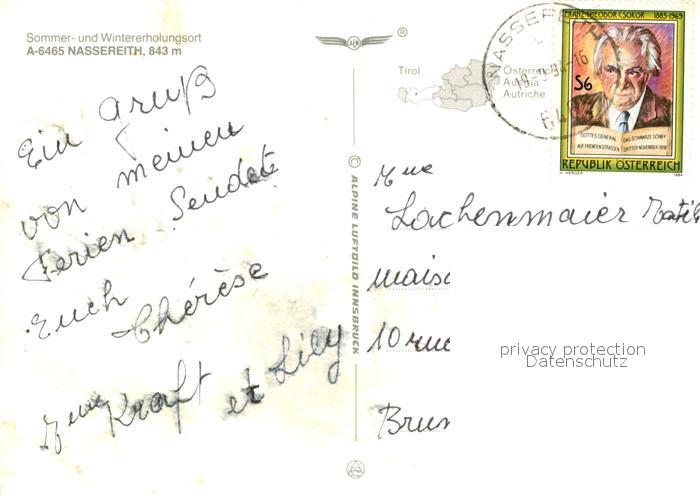 Sommer- und Wintererholungsort
A-6465 NASSEREITH, 843 m
Ein Gruß
von meinen
Ferien Sendet
Euch
Thérèse
Mme Kraft et Lily
© ALPINE LUFTBILD INNSBRUCK
®
Tirol
Österreich
Austria
Autriche
NASSEREI
FRANZ THEODOR CSOKOR 1885-1969
S6
GOTTES GENERAL
AUF FREMDEN STRASSEN
DAS SCHWARZE SCHIFF
DRITTER NOVEMBER 1918
REPUBLIK ÖSTERREICH
1994
Mme
Lachenmaier
maiso
10 rue
Brun
privacy protection
Datenschutz